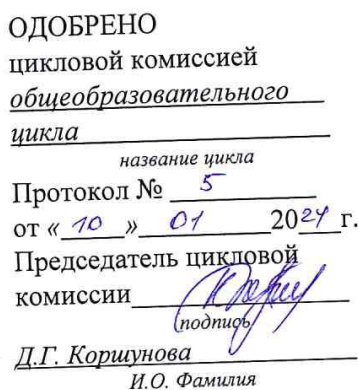 ОДОБРЕНО
цикловой комиссией
общеобразовательного
цикла
название цикла
Протокол № 5
от «10» 01 2024 г.
Председатель цикловой
комиссии
(подпись)
Д.Г. Коршунова
И.О. Фамилия